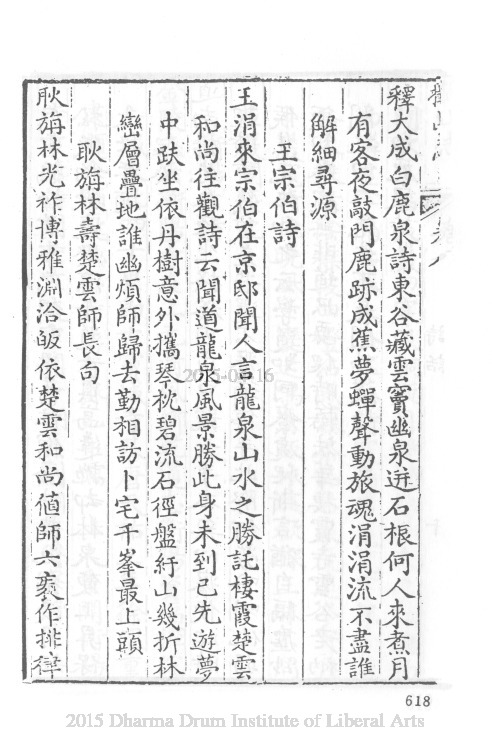 釋大成白鹿泉詩東谷藏雲竇幽泉迸石根何人來煮月
有客夜敲門鹿跡成蕉夢蟬聲動旅魂涓涓流不盡誰
解細尋源
王宗伯詩
王涓來宗伯在京邸聞人言龍泉山水之勝託棲霞楚雲
和尚往觀詩云聞道龍泉風景勝此身未到已先遊夢
中趺坐依丹樹意外攜琴枕碧流石徑盤紆山幾折林
巒層疊地誰幽煩師歸去勤相訪卜宅千峯最上頭
耿旃林壽楚雲師長句
耿旃林光祚博雅淵洽皈依楚雲和尚值師六袠作排律
618
2015-06-16
2015 Dharma Drum Institute of Liberal Arts